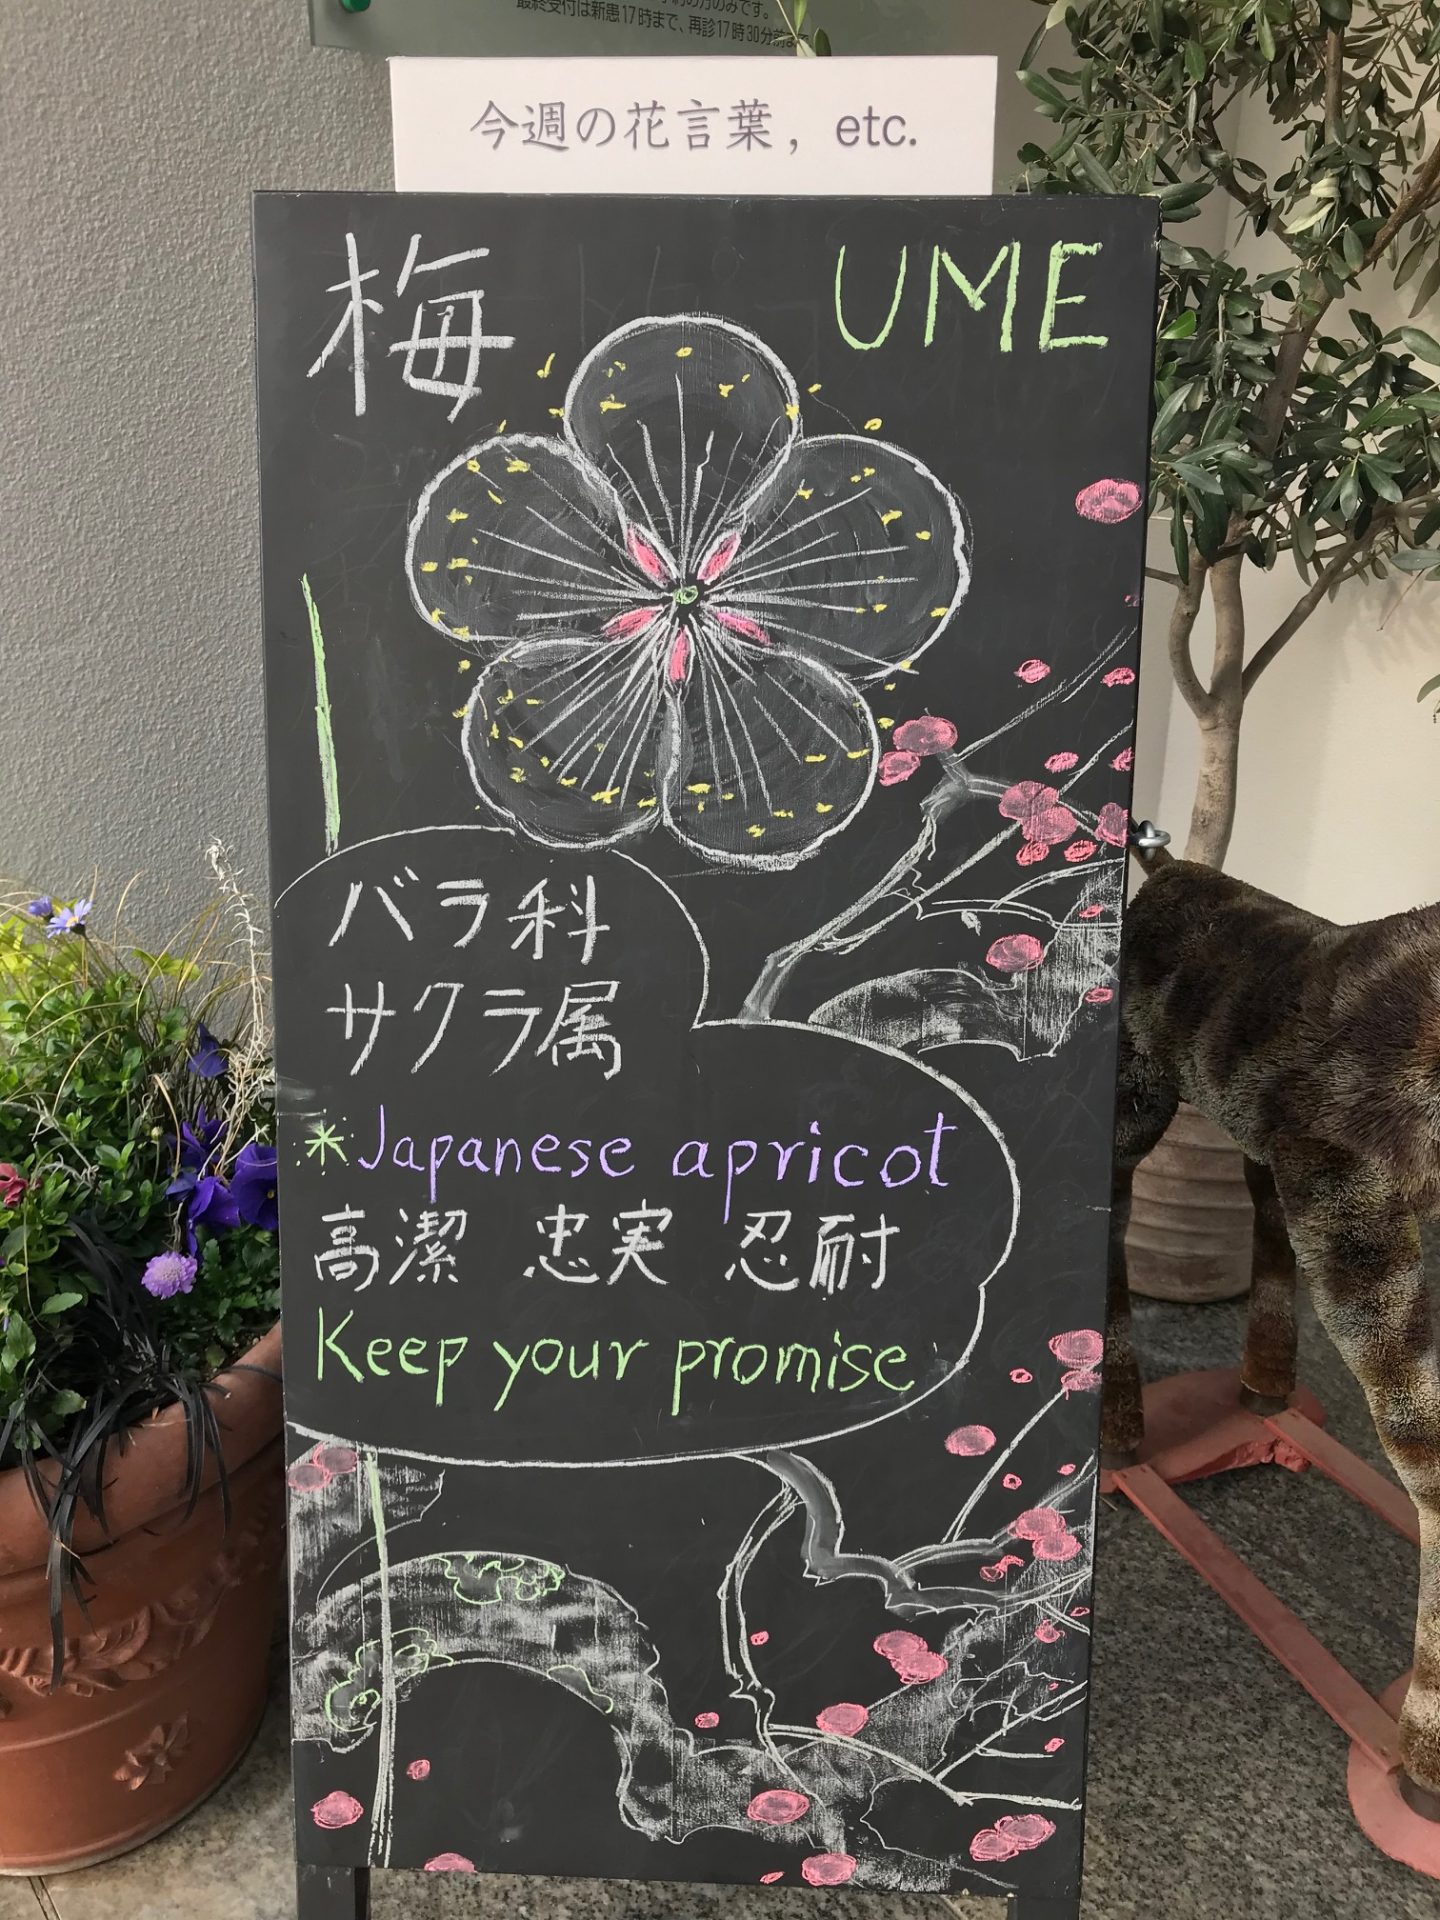 最終受付は新患17時まで、再診17時30分前まで
今週の花言葉, etc.
梅 UME
バラ科
サクラ属
*Japanese apricot
高潔 忠実 忍耐
Keep your promise